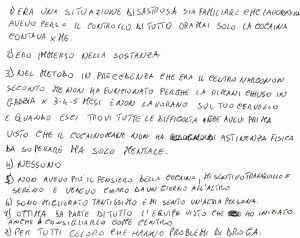 D ERA UNA SITUAZIONE DISASTROSA SIA FAMILIARE CHE LAVORATIVA
AVEVO PERSO IL CONTROLLO DI TUTTO ORAMAI SOLO LA COCAINA
CONTAVA X ME.
2) ERO IMMERSO NELLA SOSTANZA
3) NEL METODO IN PRECEDENZA CHE ERA IL CENTRO NARCONON
SECONDO ME NON HA FUNZIONATO PERCHE LA RIMANI CHIUSO IN
GABBIA X 3-4-5 MESI E NON LAVORANO SUL TUO CERVELLO
E QUANDO ESCI TROVI TUTTE LE DIFFICOLTA CHE AVEVI PRIMA
VISTO CHE IL COCAINOMANE NON HA ASTINENZA FISICA
DA SUPERARE MA SOLO MENTALE.
4) NESSUNO
5) NON AVEVO PIÙ IL PENSIERO DELLA COCAINA, MI SENTIVO TRANQUILLO E
SERENO E VEDEVO CHIARO DA UN GIORNO ALL'ALTRO
6) SONO MIGLIORATO TANTISSIMO E MI SENTO UN'ALTRA PERSONA.
7) OTTIMA DA PARTE DI TUTTO L'EQUIPE VISTO CHE HO INIZIATO
ANCHE A CONSIGLIARLO COME CENTRO
8) PER TUTTI COLORO CHE HANNO PROBLEMI DI DROGA.